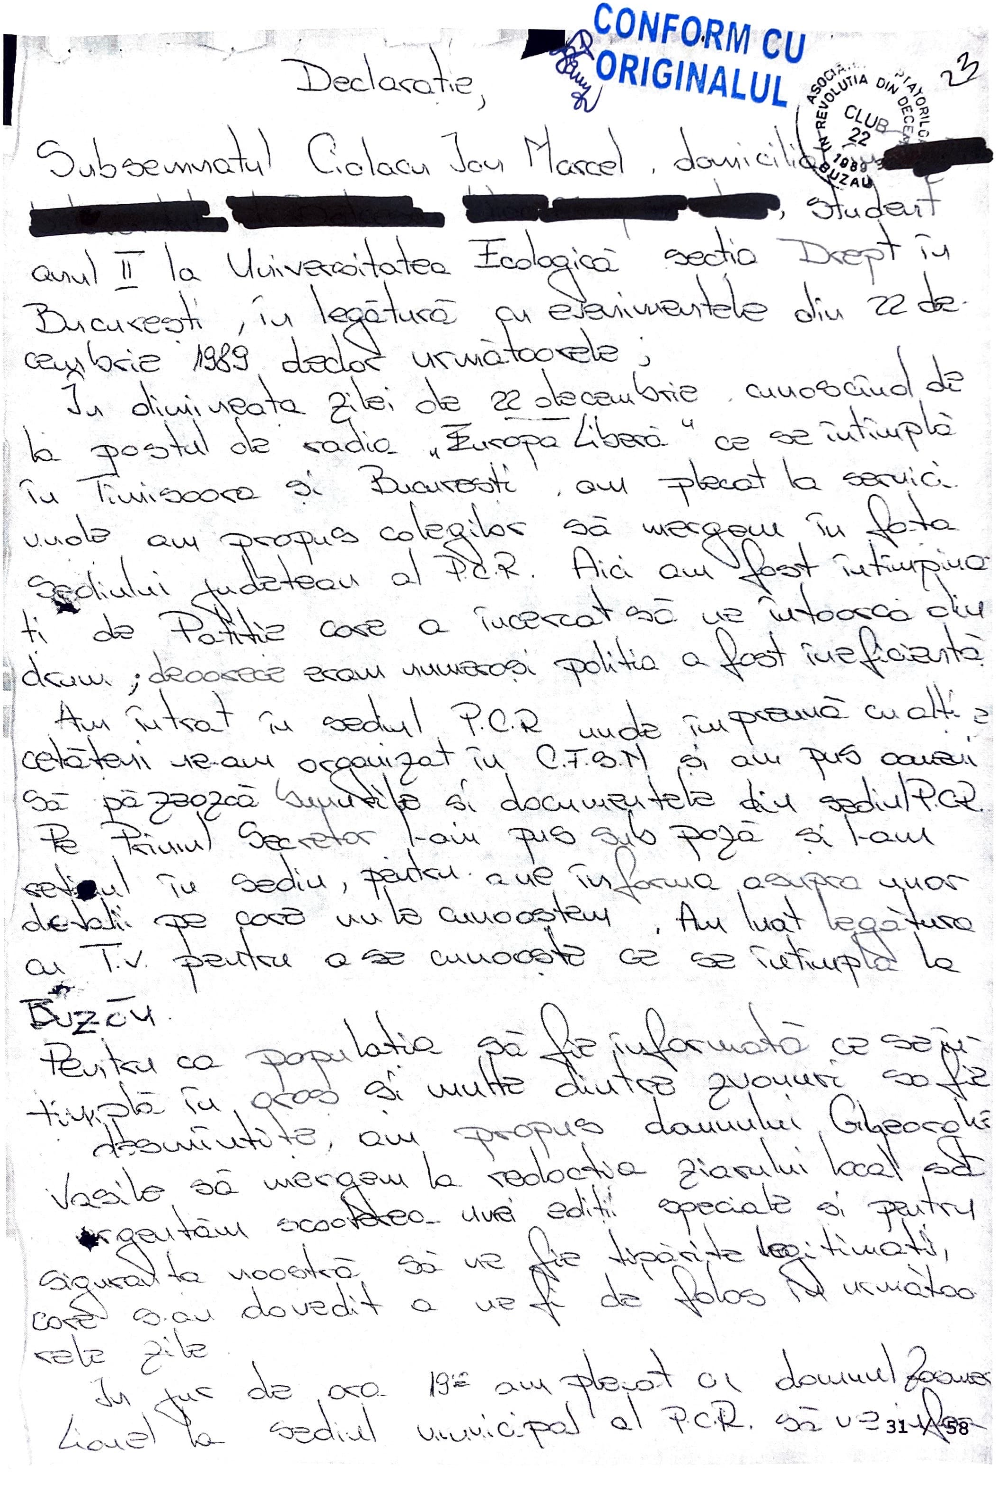 CONFORM CU
ORIGINALUL
23
ASOCIA
REVOLUTIA DIN DECE
CLUB
22
1989
BUZAU
Declaratie,
Subsemnatul Ciolacu Ion Marcel, domicilia
, student
anul II la Universitatea Ecologică sectia Drept în
Bucuresti, în legătură cu evenimentele din 22 de-
cembrie 1989 declar următoarele;
In dimineata zilei de 22 decembrie, cunoscînd de
la postul de radio „Europa Liberă" ce se întîmplă
în Timisoara si Bucuresti, am plecat la servici.
unde am propus colegilor să mergem în fata
sediului judetean al P.C.R. Aici am fost întîmpina
ti de Politie care a încercat să ne întoarcă din
drum; deoarece eram numerosi politia a fost ineficientă
Am intrat în sediul P.C.R unde împreună cu alti
cetăteni ne-am organizat în C.F.S.N si am pus oameni
să păzească bunurile si documentele din sediul P.C.R.
Pe Primul Secretar l-am pus sub pază si l-am
retinut în sediu, pentru a ne informa asupra unor
detalii pe care nu le cunoastem. Am luat legătura
cu T.V. pentru a se cunoaste ce se întîmplă la
Buzău.
Pentru ca populatia să fie informată ce se în-
timplă în oras si multe dintre zvonuri sa fie
desmintite, am propus domnului Gheorghe
Vasile să mergem la redactia ziarului local să
urgentăm scoaterea unei editii speciale si pentru
siguranta noastră să ne fie tipărite legitimatii,
care s-au dovedit a ne fi de folos în următoa
rele zile.
In jur de ora 19 am plecat cu domnul
Lionel la sediul municipal al P.C.R. să ne infor
31 / 58